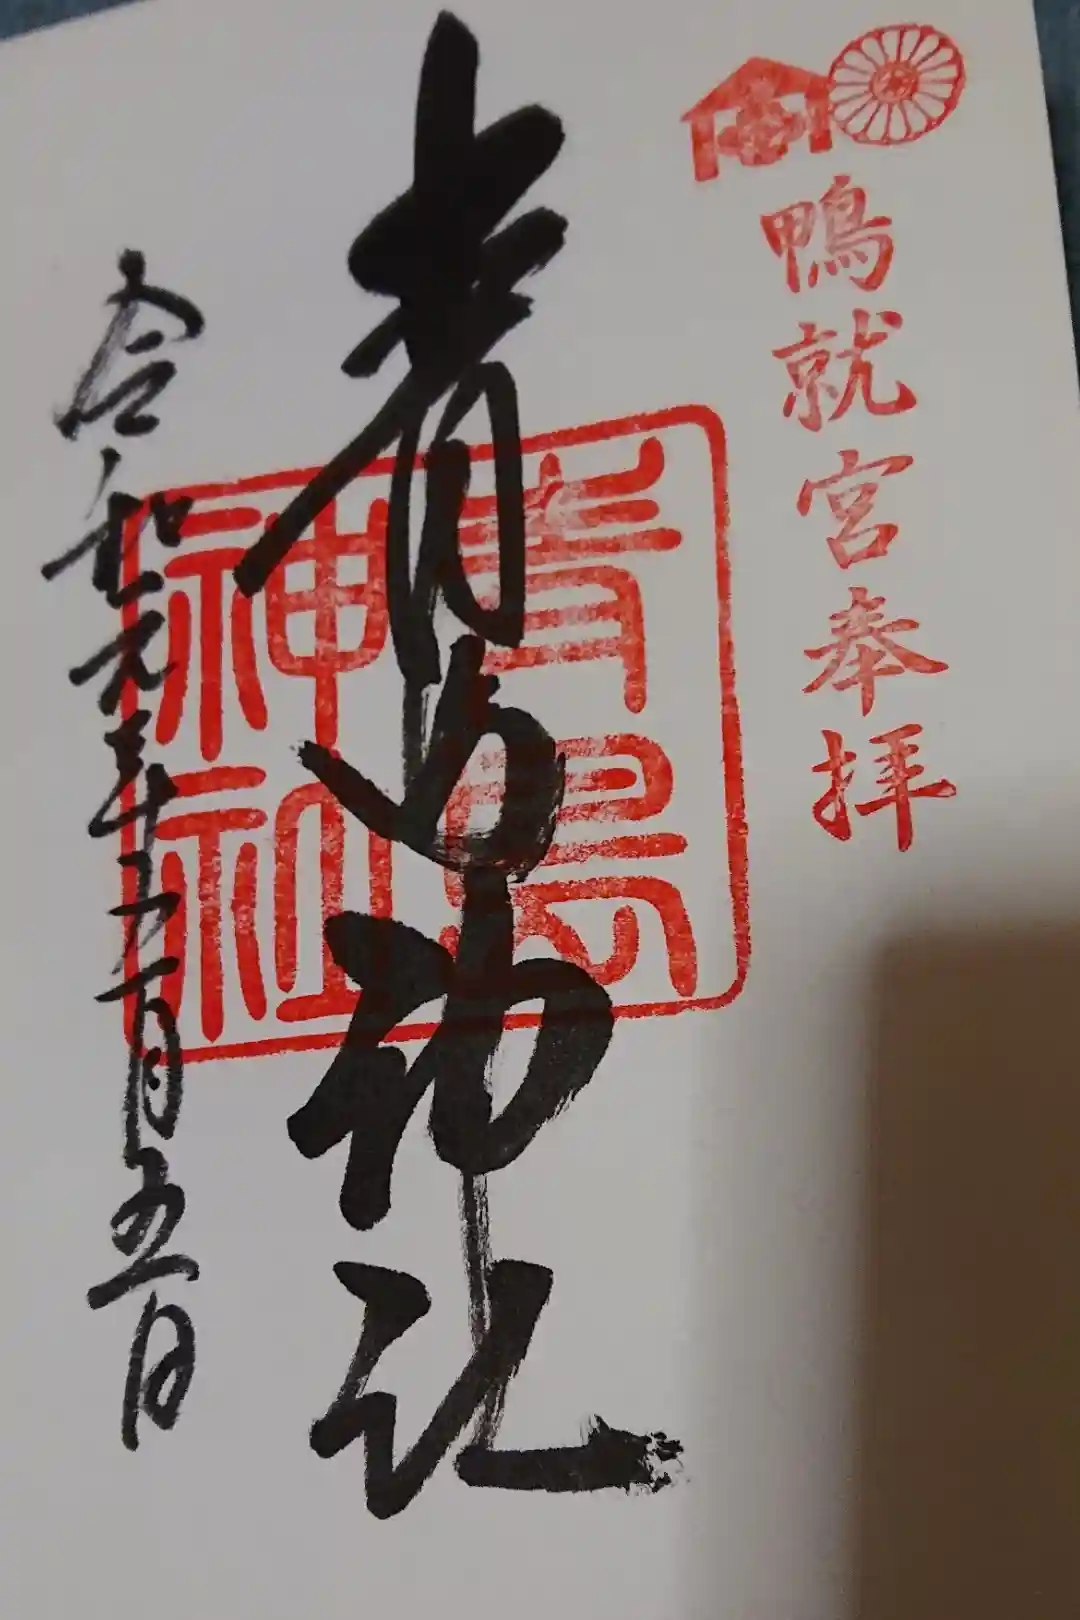 鴨就宮奉拝
青島神社
青島
神社
令和元年五月五日